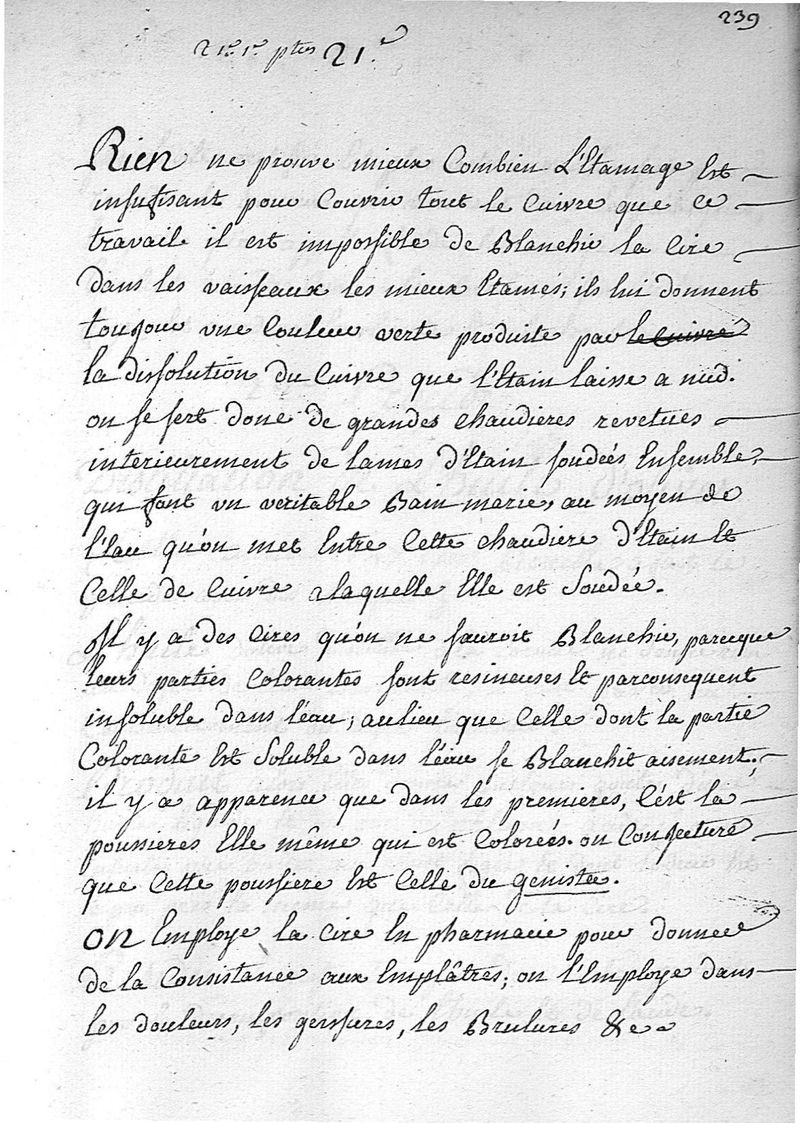 239
21.e 1.re ptes 21.e
Rien ne prouve mieux Combien L'Etamage Est
insufisant pour Couvrir tout le Cuivre que ce
travail. il est impossible de Blanchir la Cire
dans les vaisseaux les mieux Etamés; ils lui donnent
toujour une Couleur verte produite par le cuivre
la dissolution du Cuivre que l'Etain laisse a nud.
on se sert donc de grandes chaudieres revetues
interieurement de lames d'Etain soudées Ensemble,
qui font un veritable Bain marie, au moyen de
l'Eau qu'on met Entre Cette chaudiere d'Etain Et
Celle de Cuivre alaquelle Elle est Soudée.
Il y a des Cires qu'on ne sauroit Blanchir, parceque
leurs parties Colorantes sont resineuses Et parconsequent
insoluble dans l'eau; aulieu que Celle dont la partie
Colorante Est Soluble dans l'eau se Blanchit aisement.
il y a apparence que dans les premieres, C'est la
poussieres Elle même qui est Colorées. on Conjecture
que Cette poussiere Est Celle du genista.
ON Employe la Cire En pharmacie pour donner
de la Consistance aux Emplâtres; on l'Employe dans
les douleurs, les gersures, les Brulures &c